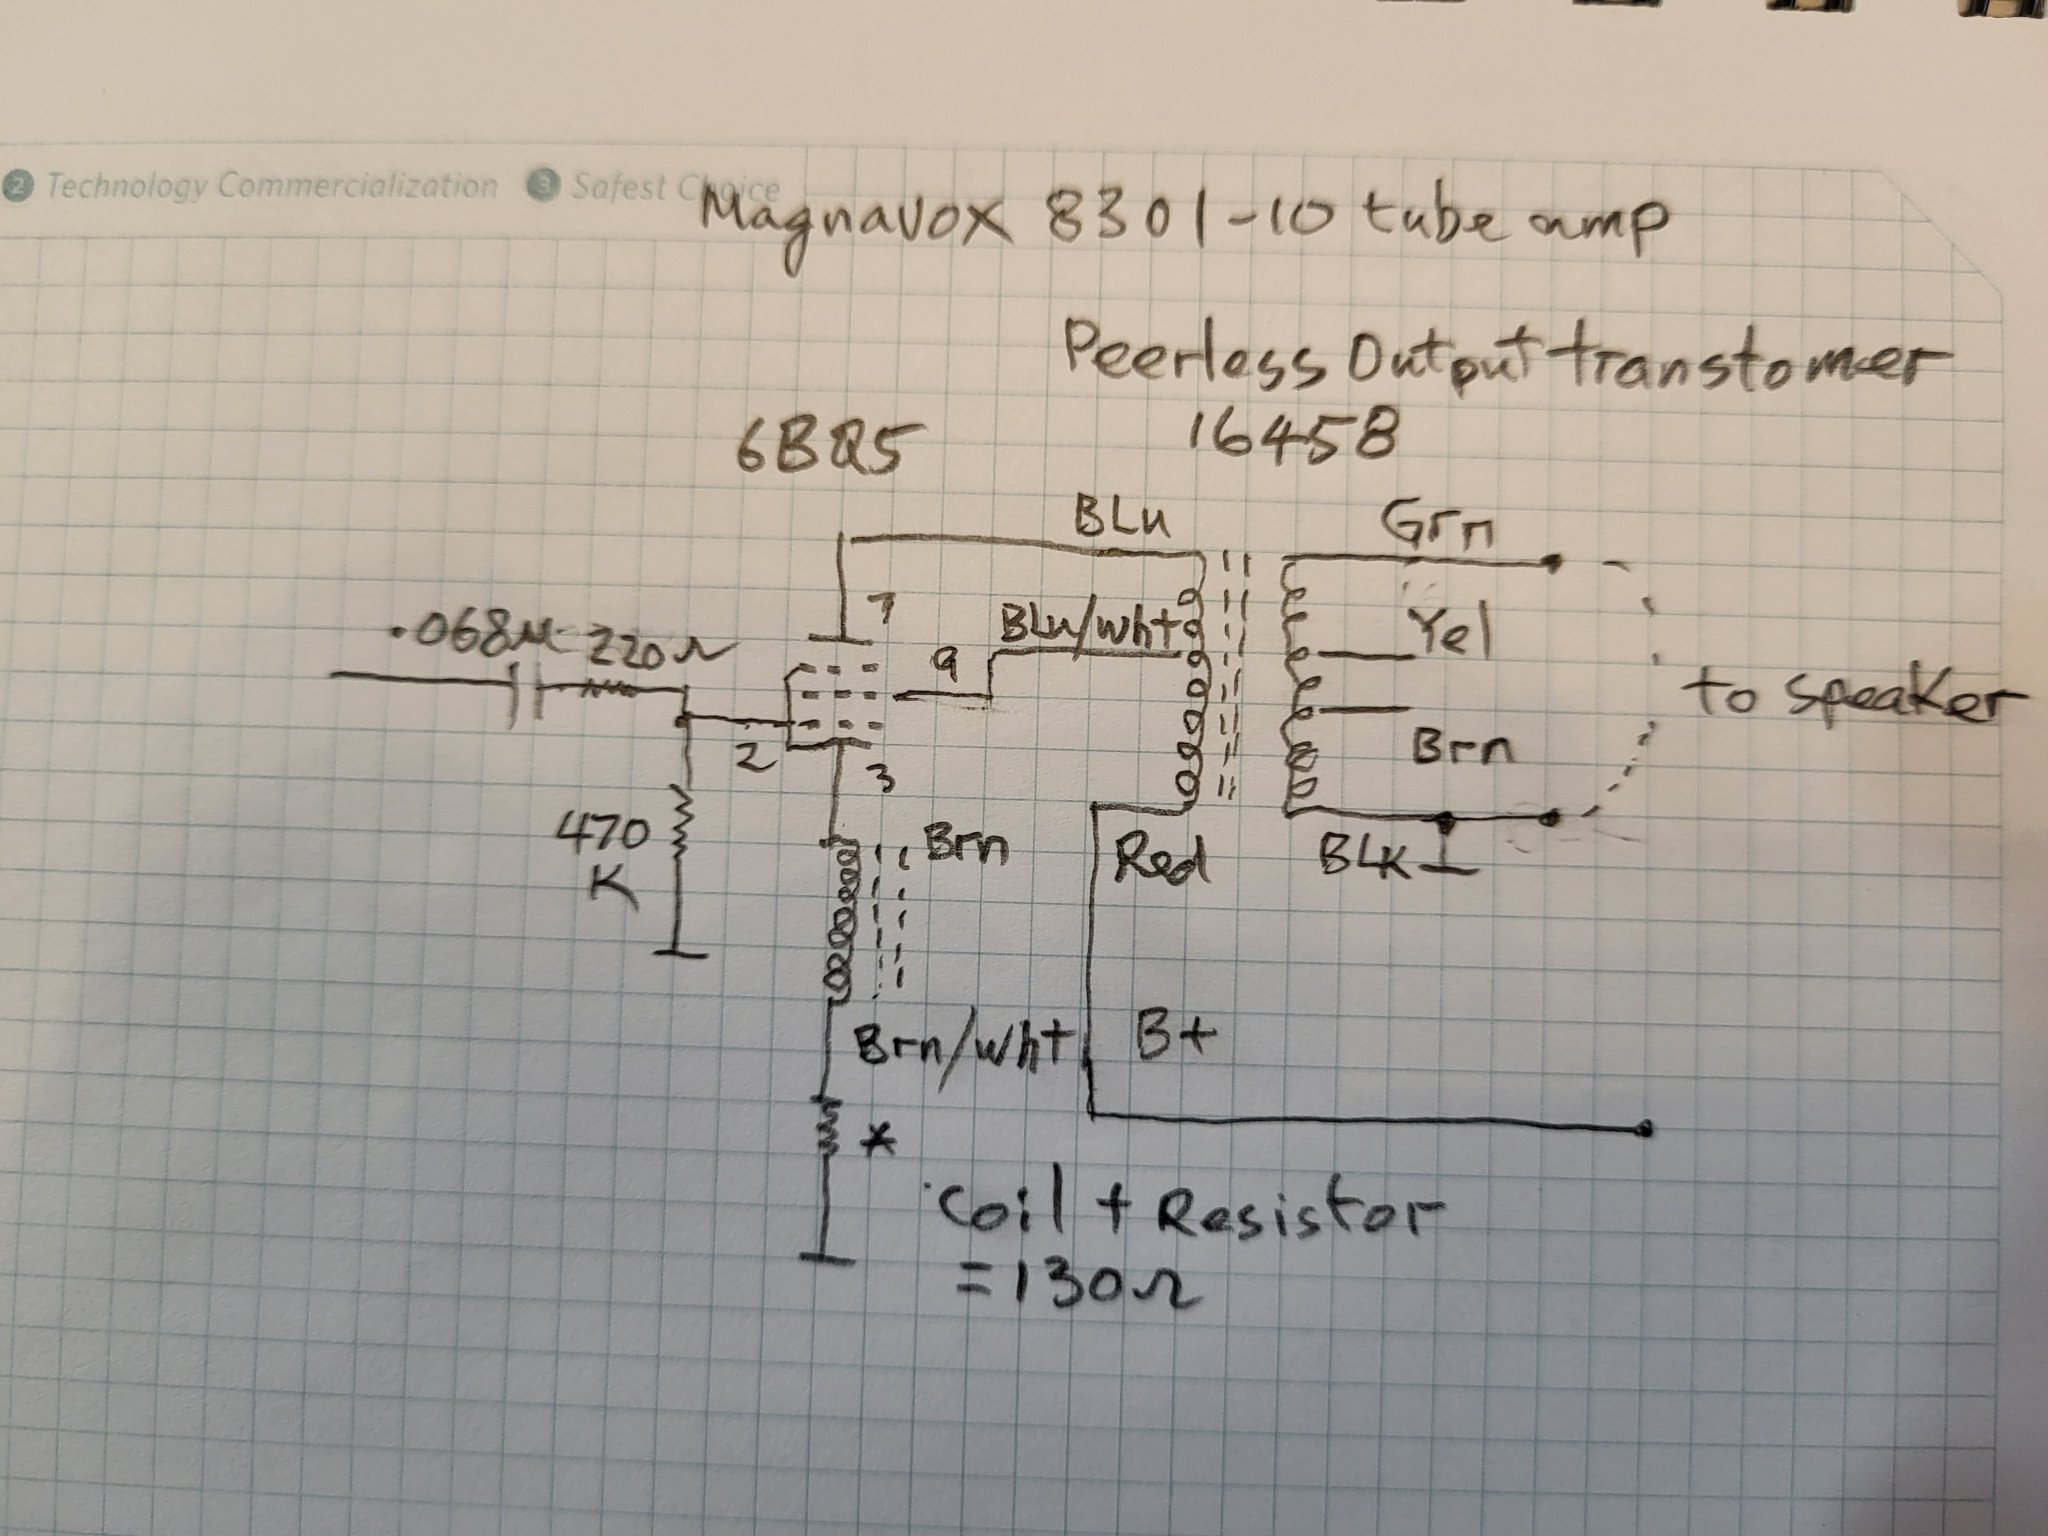 2 Technology Commercialization 3 Safest Choice
Magnavox 8301-10 tube amp
Peerless Output transtomer
16458
6BQ5
BLu
Grn
7
.068µ 220Ω
Blu/wht
Yel
9
to speaker
2
3
Brn
470
K
Brn
Red
BLK
Brn/wht
B+
*
Coil + Resistor
= 130Ω